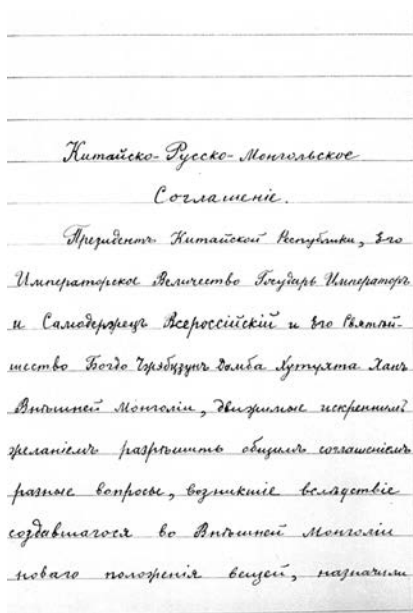 Китайско-Русско-Монгольское
Соглашеніе.
Президентъ Китайской Республики, Его
Императорское Величество Государь Императоръ
и Самодержецъ Всероссійскій и Его Святѣй-
шество Богдо Чжэбцзунъ Дамба Хутухта Ханъ
Внѣшней Монголіи, движимые искреннимъ
желаніемъ разрѣшить общимъ соглашеніемъ
разные вопросы, возникшіе вслѣдствіе
создавшагося во Внѣшней Монголіи
новаго положенія вещей, назначили